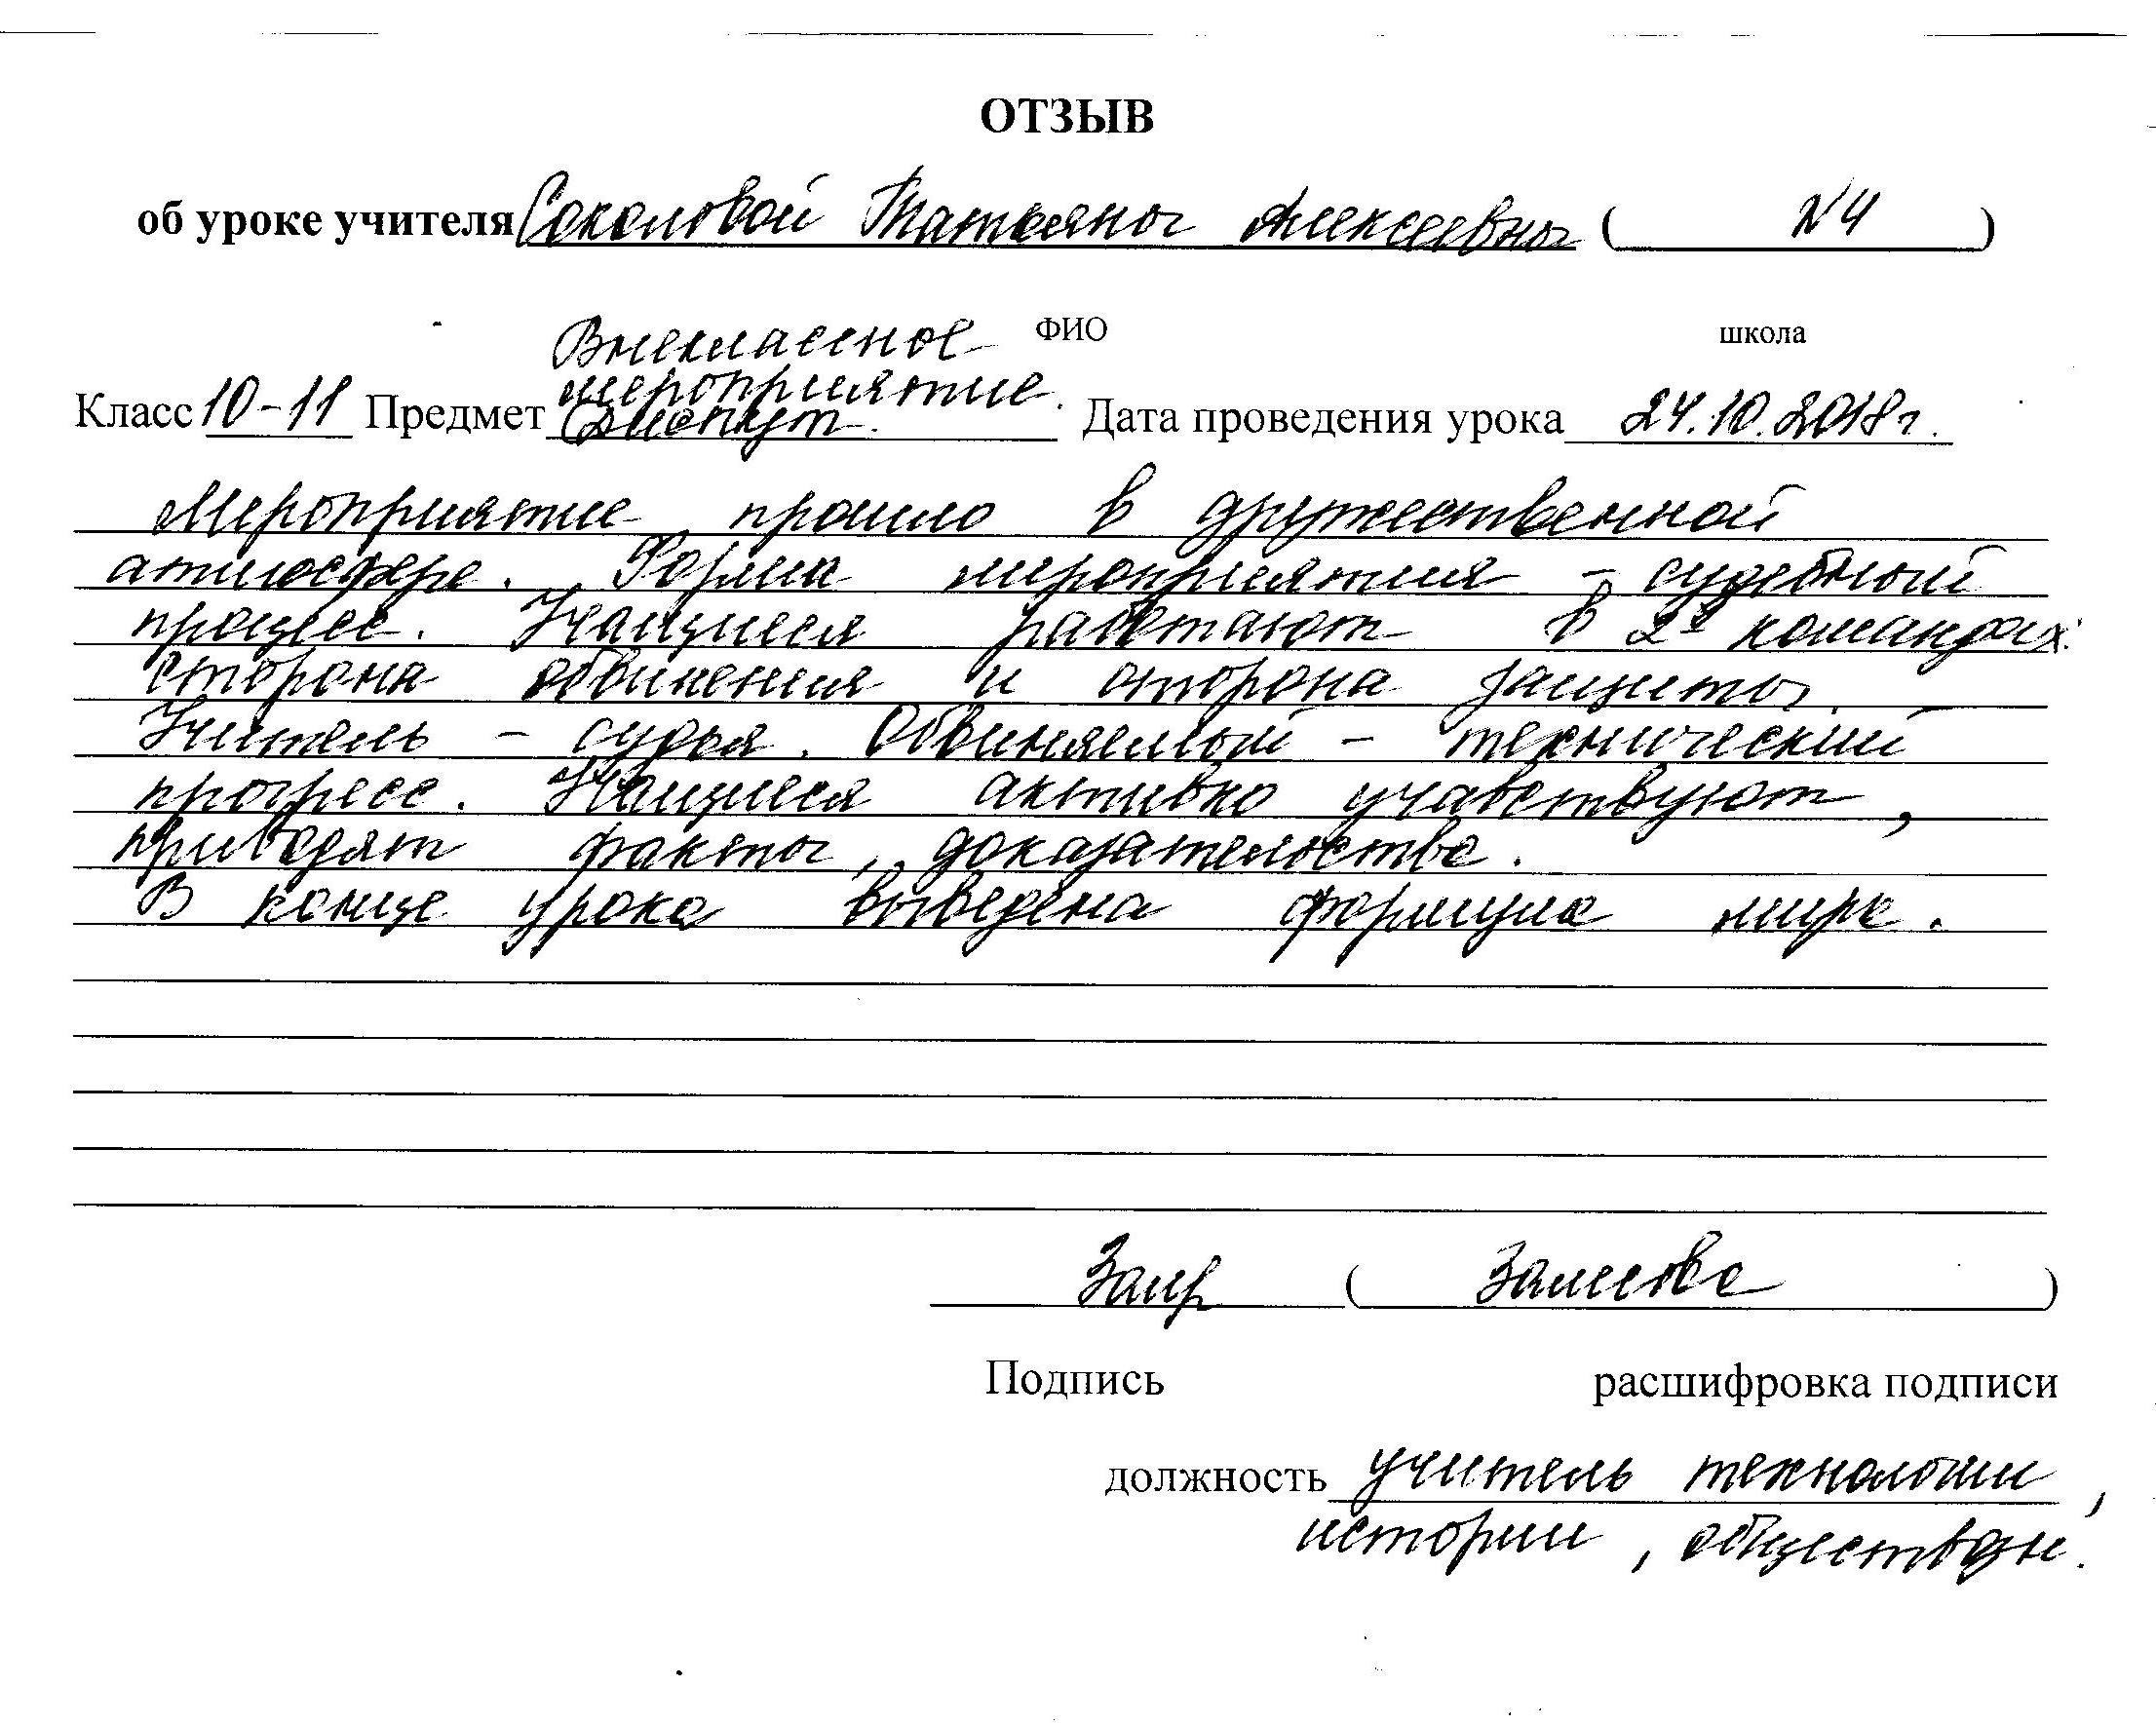 ОТЗЫВ
об уроке учителя Соколовой Татьяны Алексеевны ( №4 )
ФИО школа
Внеклассное
мероприятие.
Класс 10-11 Предмет Диспут. Дата проведения урока 24.10.2018г.
Мероприятие прошло в дружественной
атмосфере. Форма мероприятия - судебный
процесс. Учащиеся работают в 2х командах:
сторона обвинения и сторона защиты.
Учитель - судья. Обвиняемый - технический
прогресс. Учащиеся активно учавствуют,
приводят факты, доказательства.
В конце урока выведена формула мира.
( )
Подпись расшифровка подписи
должность учитель технологии,
истории, обществозн.